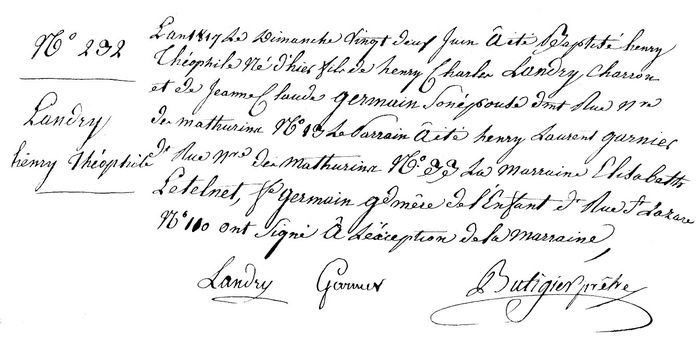 N° 232
Landry
henry Théophile
L'an 1817 Le Dimanche Vingt deux Juin À été Baptisé henry
Théophile Né d'hier fils de henry Charles Landry Charron
et de Jeanne Claude germain Son épouse dmt Rue nve
des mathurins N° 13 Le Parrain À été henry Laurent garnier
dt Rue Nve des Mathurins N° 33 La Marraine Elisabeth
Letelnet, fe germain gd mère de l'Enfant dt Rue St Lazare
N° 110 ont Signé À L'exception de la Marraine,
Landry Garnier Butigier prêtre